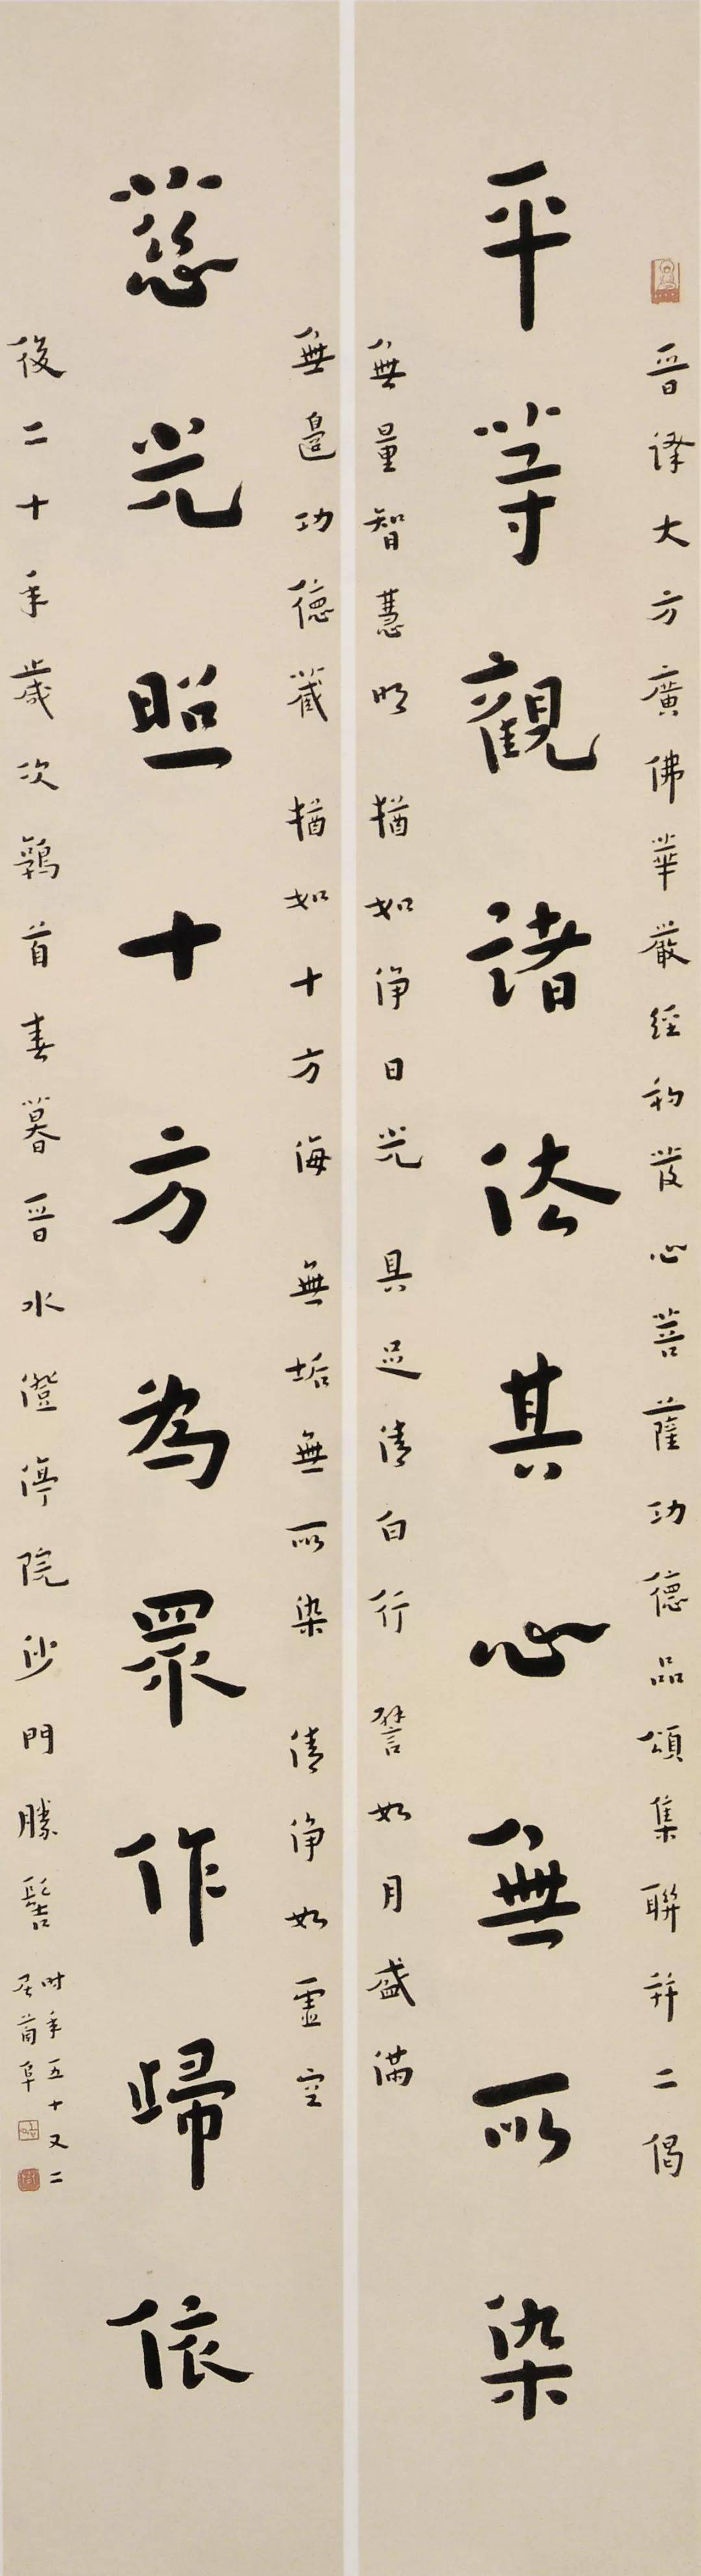 晉譯大方廣佛華嚴經初發心菩薩功德品頌集聯并二偈
平等觀諸法其心無所染
無量智慧明 猶如淨日光 具足清白行 譬如月盛滿
無邊功德藏 猶如十方海 無垢無所染 清淨如虛空
慈光照十方為眾作歸依
後二十年歲次鶉首春暮晉水澄渟院沙門勝髻
時年五十又二
居莆阜